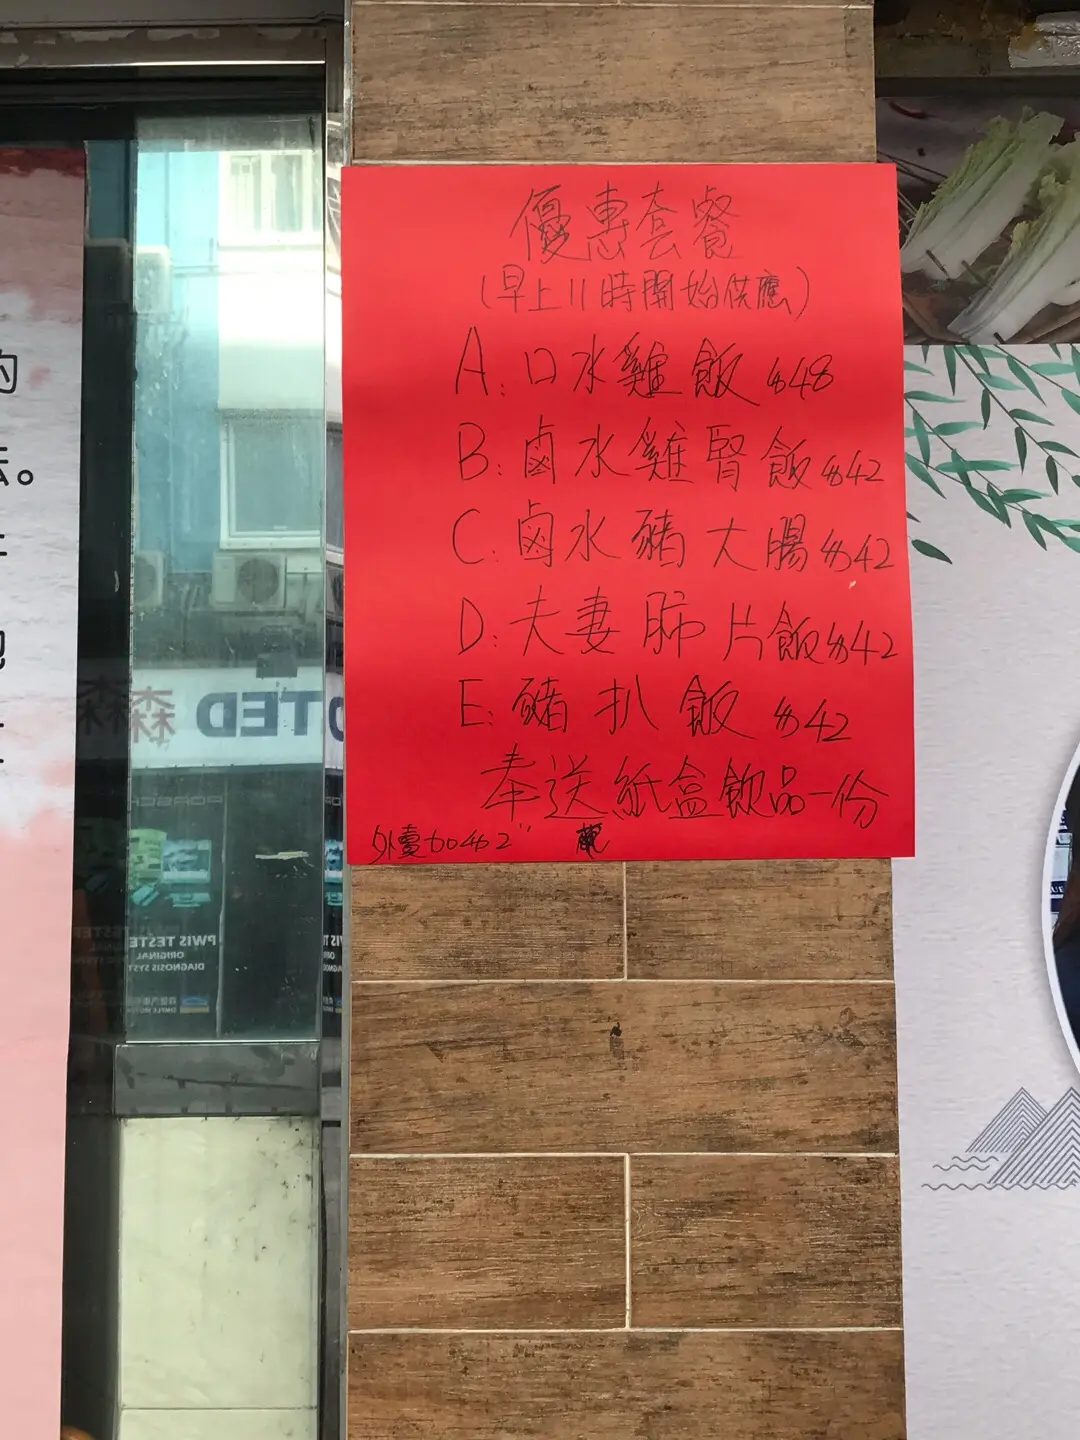 優惠套餐
(早上11時開始供應)
A:口水雞飯 $48
B:鹵水雞腎飯 $42
C:鹵水豬大腸 $42
D:夫妻肺片飯 $42
E:豬扒飯 $42
奉送紙盒飲品一份
外賣加$2"
的
法。
森森
TESTED
PORSCHE
PWIS TESTE
ORIGINAL
DIAGNOSIS SYST